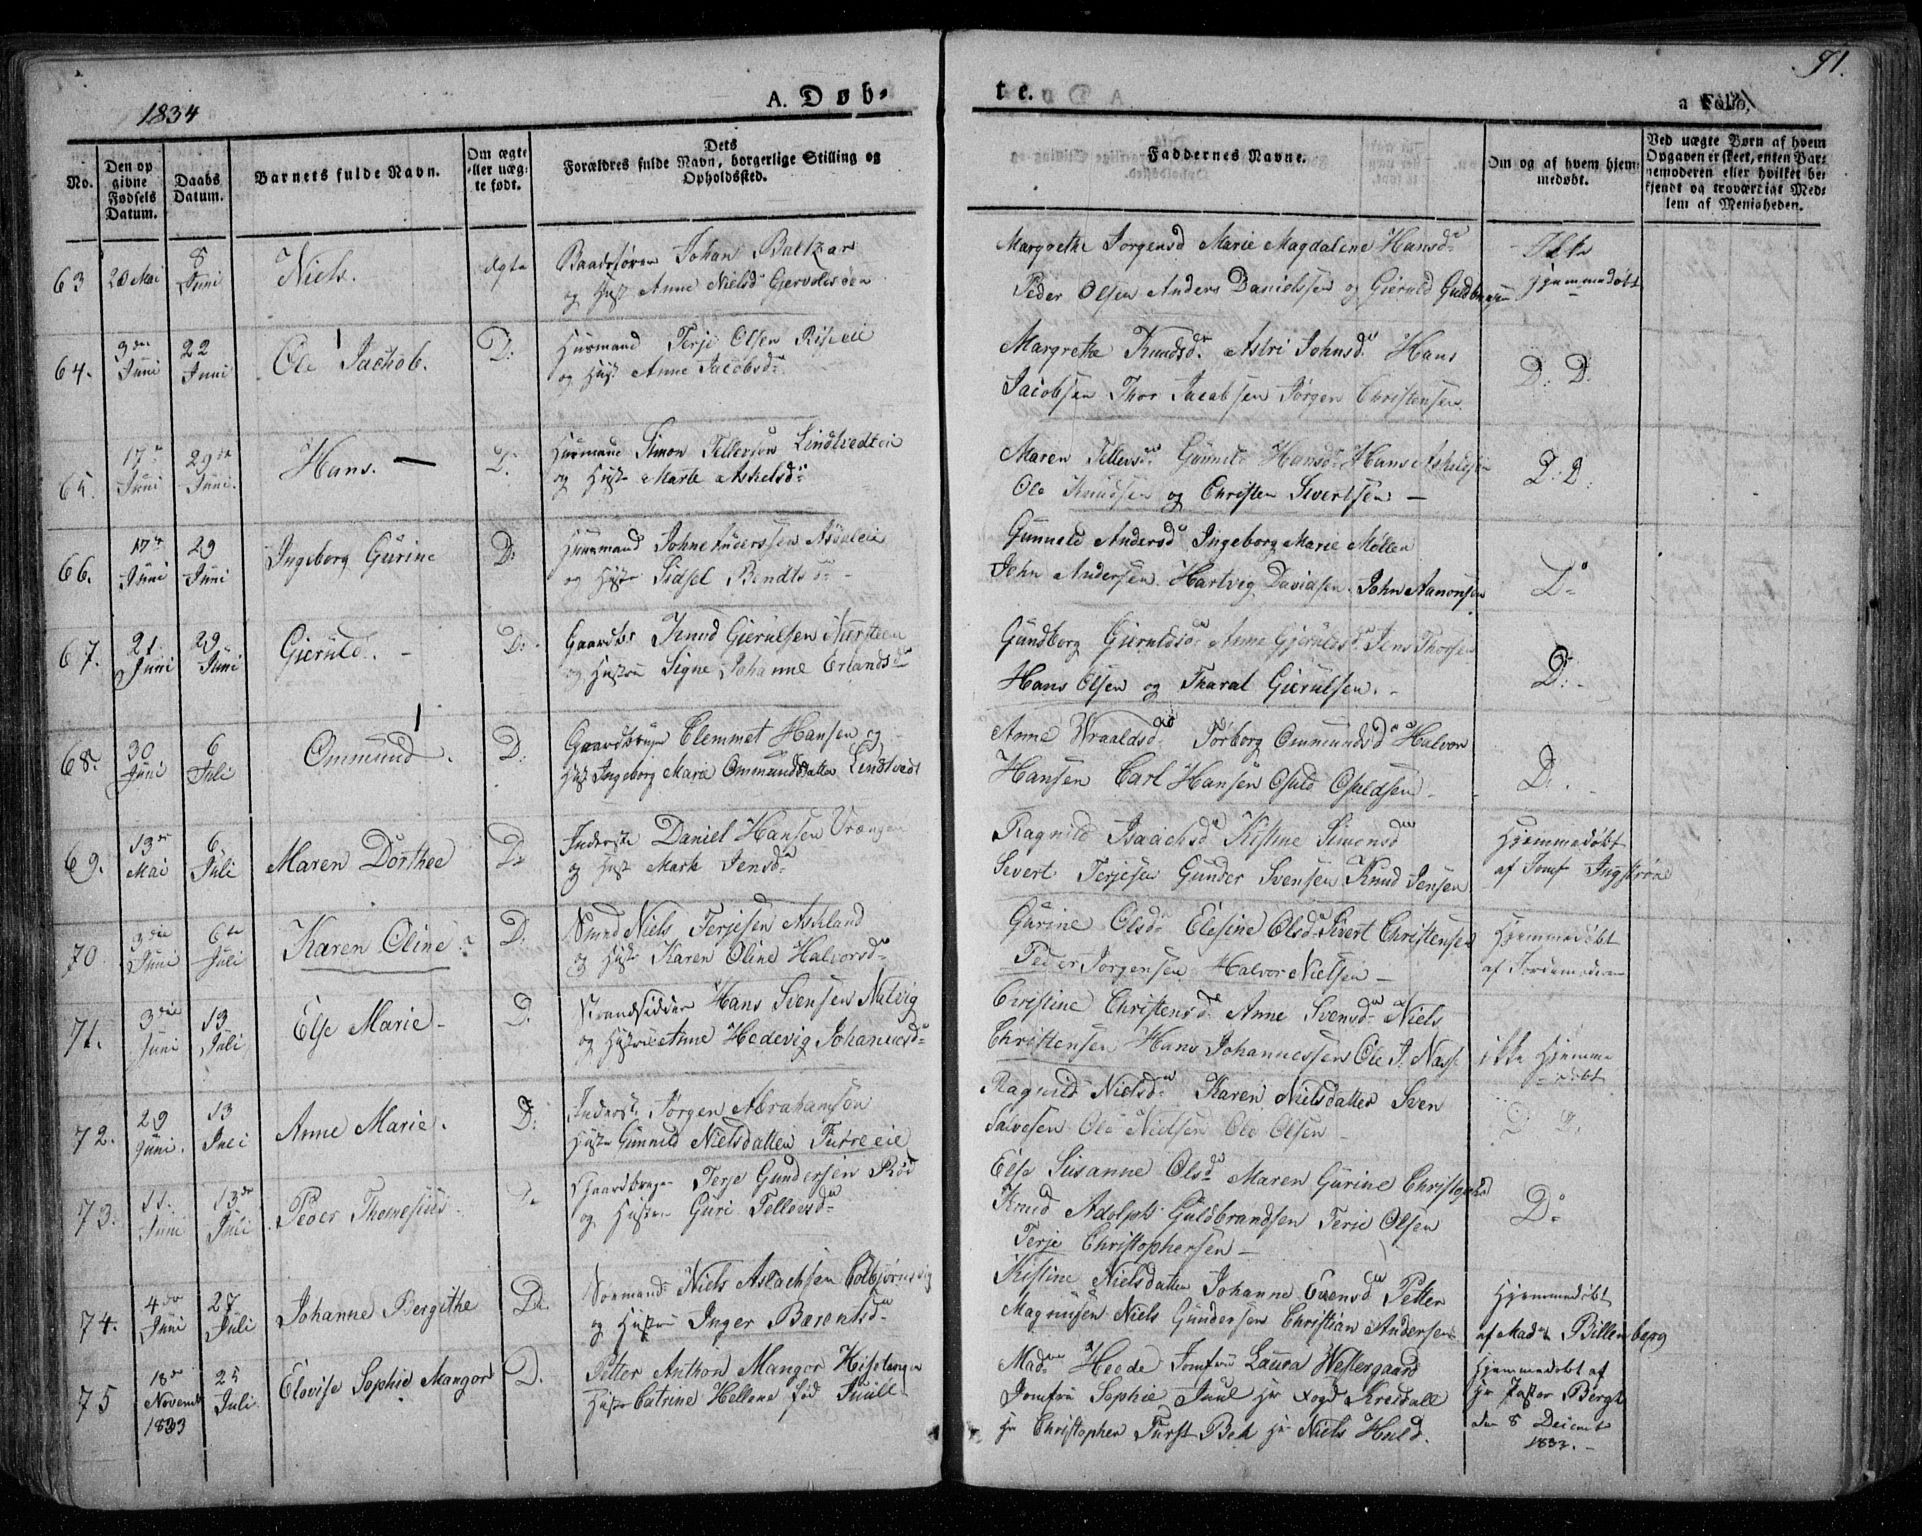 1834
A. Døb-
te.
91.
a Folio,
No.
Den op
givne
Fødsels
Datum.
Daabs
Datum.
Barnets fulde Navn.
Om ægte
eller uæg-
te født.
Dets
Forældres fulde Navn, borgerlige Stilling og
Opholdssted.
Faddernes Navne.
Om og af hvem hjem-
medøbt.
Ved uægte Børn af hvem
Opgaven er skeet, enten Bar-
nemoderen eller hvilket be-
kjendt og troværdigt Med-
lem af Menigheden.
63 20 Mai 8 Juni Niels. ægte
Johan Baltzar
og Hust Anne Nielsd
Margrethe Jorgensd Marie Magdalene Hansd
Peder Olsen Anders Danielssen og Gieruld
Ikke
Hjemmedøbt
64. 3die Juni 22 Juni Ole Jachob. D:
Huusmand Terje Olsen Riseeie
og Hust Anne Jacobsd
Margrethe Knudsd. Astri Johnsd. Hans
Jacobsen Thor Jacobsen Jörgen Christensen.
D: D.
65. 17 Juni 29 Juni. Hans. — D.
Huusmand Simon Tellefsen Lindtvedteie
og Hust Marte Askelsd
Maren Tellefsd Gunnild Hansd Hans
Ole Knudsen og Christen Sivertsen —
D. D.
66. 17 Juni 29 Juni Ingeborg Gurine D:
Huusmand
og Hust Sidsel Bendtsd
Gunnild Andersd Ingeborg Marie Møller
John Andersen. Hartvig Davidsen. John Aanonsen
D
67. 21 Juni 29 Juni Gieruld. - D:
Knud Gierulsen
og Hustru Signe Johanne Erlandsd
Gundborg Gieruldsd Anne Gjeruldsd Jens Thorsen
Hans Olsen og Tharal Gierulsen. -
D: -
68. 30 Juni 6 Juli Ommund. D:
Gaardbruger Clemmet Hansen og
Hust Ingeborg Marie Ommundsdatter Lindtvedt
Anne Wraaldsd. Torborg Ommundsd Halvor
Hansen Carl Hansen Osuld Osuldsen -
D. -
69. 13de Mai 6 Juli Maren Dorthee D:
Inderste Daniel Hansen Vrængen
og Hust Marte Jensd
Ragnild Isaachsd Kistine Simonsd
Sivert Terjesen Gunder Svensen Knud Jensen
Hjemmedøbt
af Jomf
70 3die Juni 6te Juli Karen Oline D.
Smed Niels Terjesen Askland
og Hust Karen Oline Halvorsd
Gurine Olsd Elesine Olsd Sivert Christensen
Peder Jorgensen Halvor Nielsen —
Hjemmedøbt
af Jordemoderen
71. 3die Juni 13 Juli Else Marie - D.
Strandsidder Hans Svensen Natvig
og Hustrue Anne Hedevig Johannesd
Christine Christensd. Anne Svensd Niels
Christensen Hans Johannessen Ole
ikke Hjemme
døbt
72. 29 Juni. 13 Juli Anne Marie. D:
Inderst Jørgen Abrahamsen
Hust Gunnild Nielsdatter
Ragnild Nielsd Karen Nielsdatter Sven
Salvesen Ole Nielsen Ole Olsen -
D D.
73. 11. Juni 13de Juli Peder Thomesius. D
Gaardbruger Terje Gundersen Röd
og Hustru Guri Tellevsd
Else Susanne Olsd Maren Gurine Christophd
Knud Adolph Guldbrandsen Terje Olsen
Terje Christophersen —
D
74. 4de Juni 27 Juli Johanne Bergithe D.
Sømand Niels Aslachsen Colbjörnsvig
og Hustru Inger Barentsd
Kistine Nielsdatter Johanne Evensd Petter
Magnusen Niels Gundersen Christian Andersen
Hjemmedøbt
af Mad Billenberg
75 18de Novemb 1833 25 Juli. Elovise Sophie Mangor D.
Petter Anthon Mangor
Hust Catrine Hellene fød Juell
Mad Heede Jomfru Laura Westergaard
Jomfru Sophie Juul Hr
Hr Christopher Fürst Beh Hr Niels Huld.
Hjemmedøbt af
Hr Pastor Bergh
den 8 Decemb
1833. -